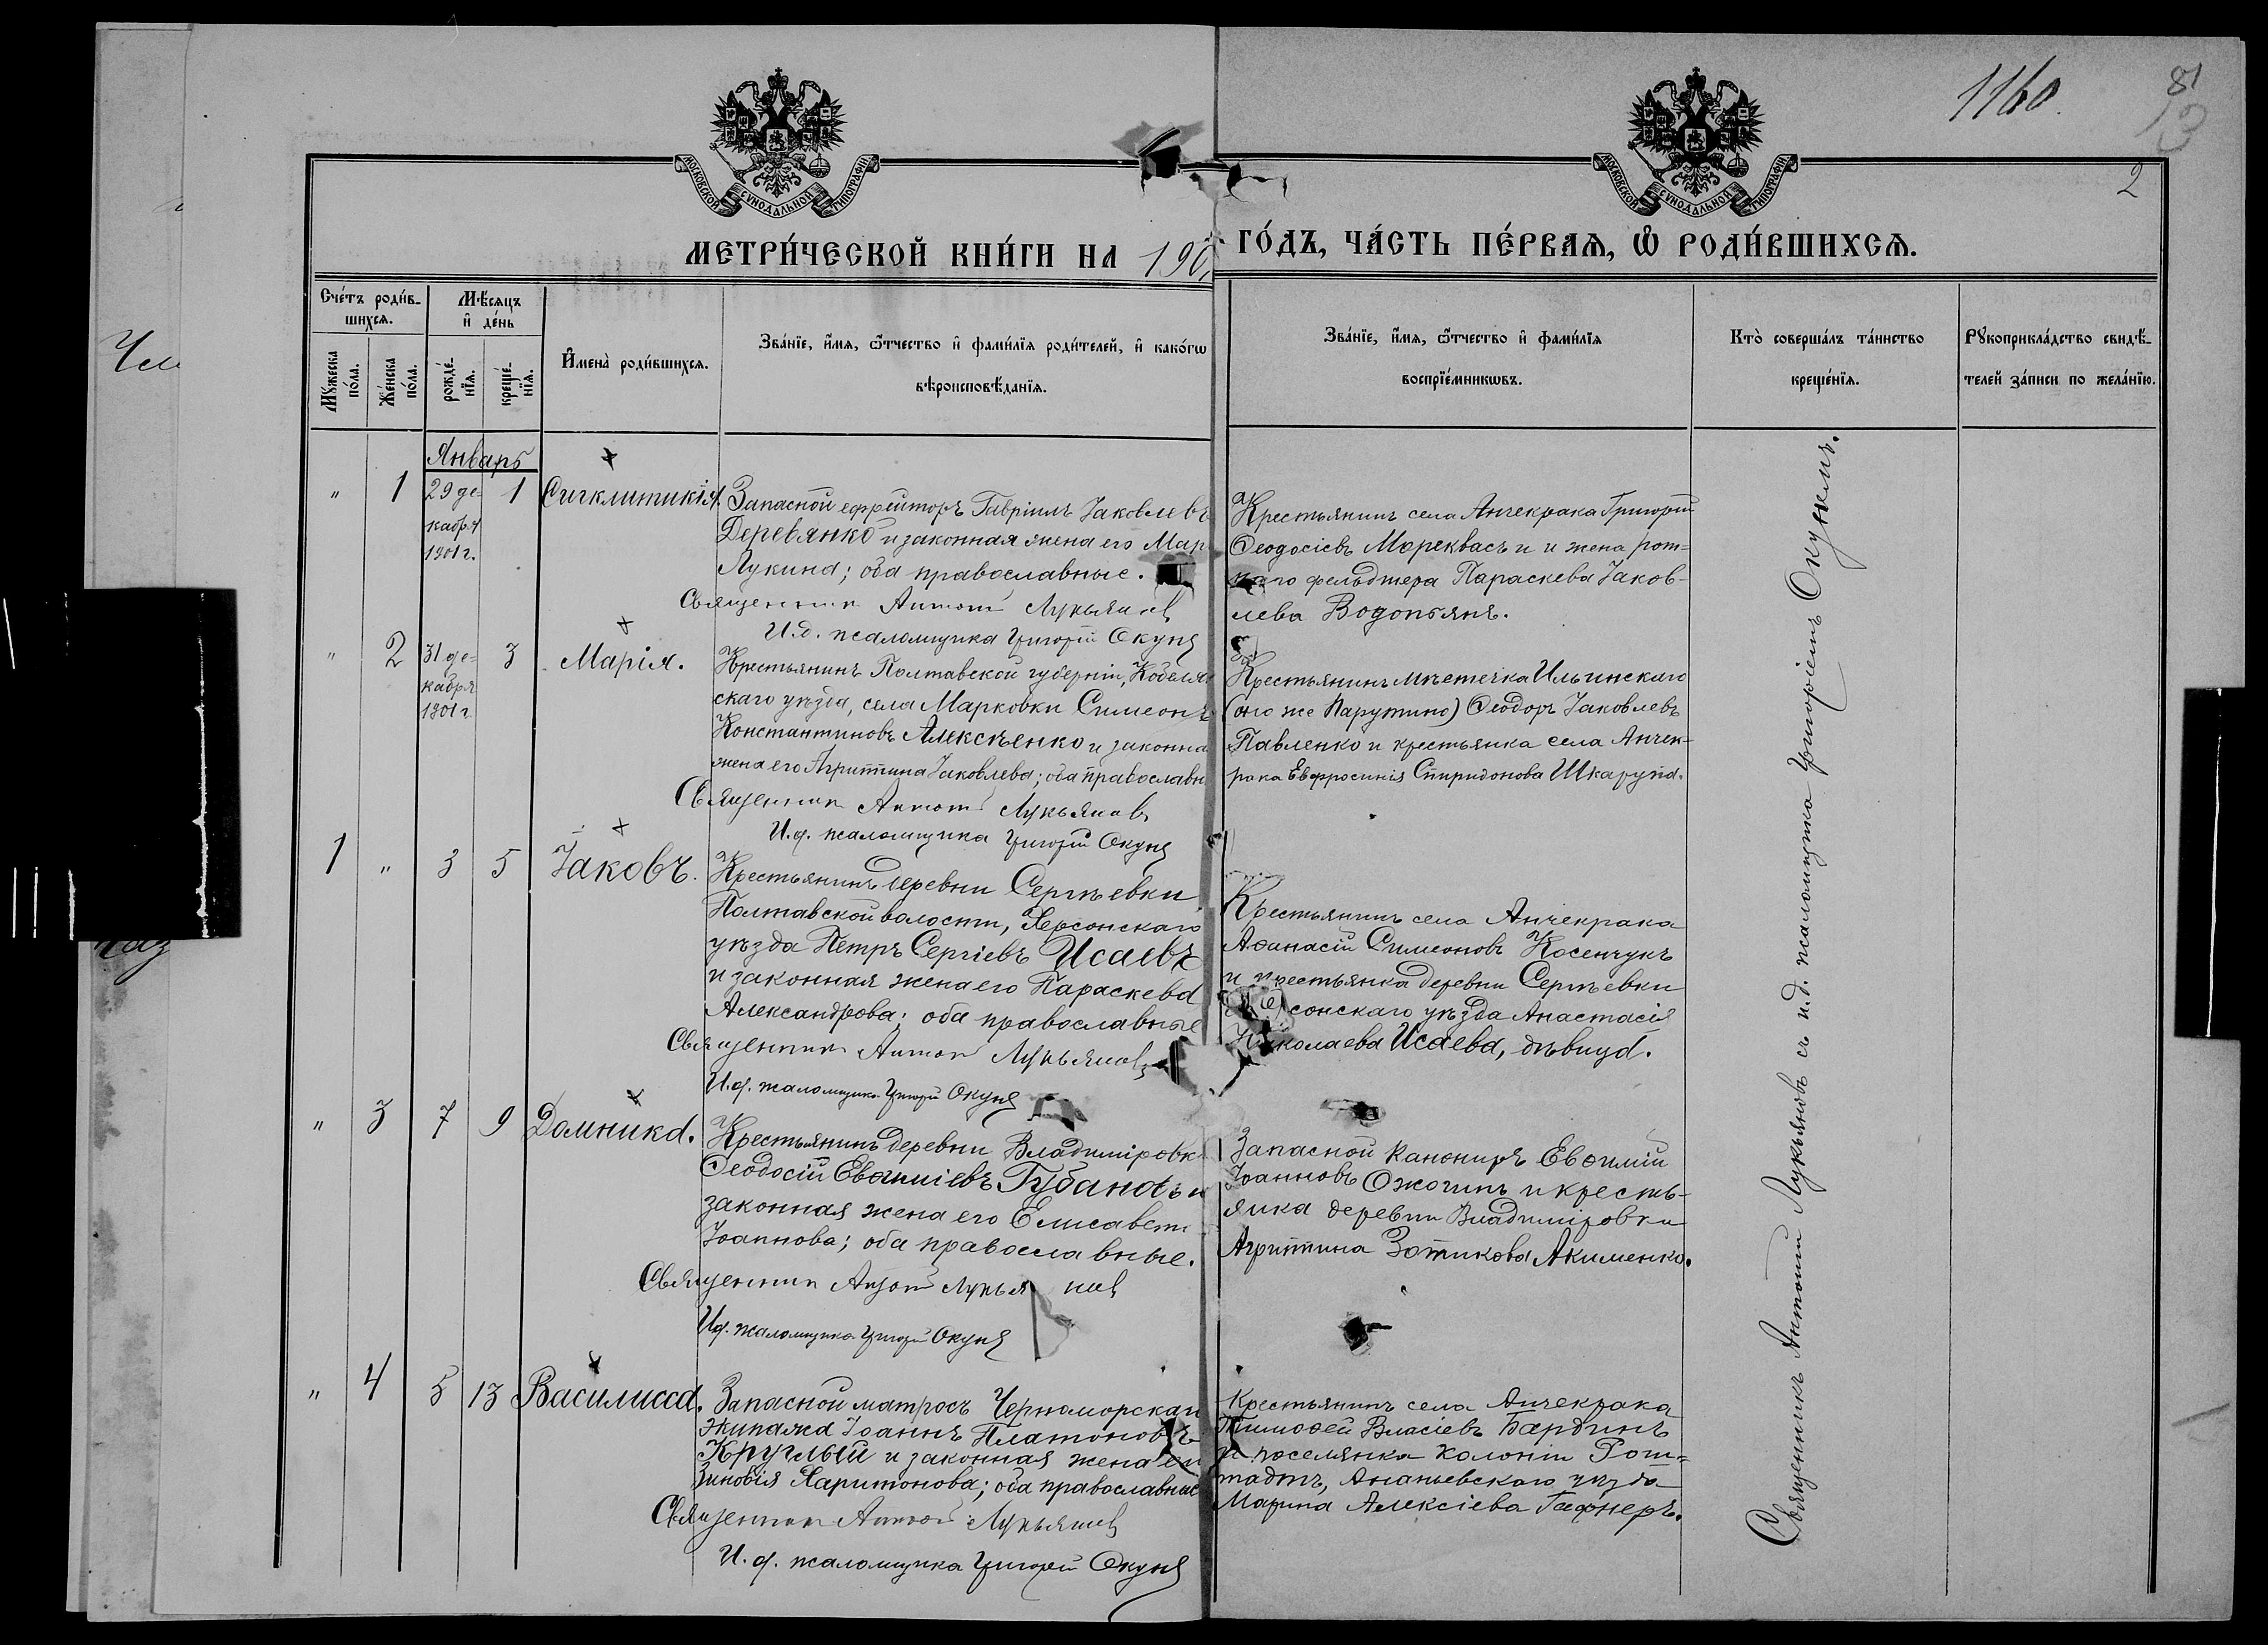 1160.
81
13
2
МОСКОВСКОЙ СѴНОДАЛЬНОЙ ТИПОГРАФІИ
МОСКОВСКОЙ СѴНОДАЛЬНОЙ ТИПОГРАФІИ
МЕТРИ́ЧЕСКОЙ КНИ́ГИ НА 190
ГО́ДЪ, ЧА́СТЬ ПЕ́РВАЯ, Ѿ РОДИ́ВШИХСЯ.
Сче́тъ роди́в-
шихся.
Мѣ́сяцъ
и де́нь
Му́жеска по́ла.
Же́нска по́ла.
рожде́-
нїя.
креще́-
нїя.
И҆мена̀ роди́вшихся.
Зва́нїе, и҆́мя, ѻ҆́тчество и҆ фами́лїя роди́телей, и҆ како́гѡ
вѣроисповѣ́данїя.
Зва́нїе, и҆́мя, ѻ҆́тчество и҆ фами́лїя
воспрїе́мникѡвъ.
Кто̀ соверша́лъ та́инство
креще́нїя.
Рꙋкоприкла́дство свидѣ́-
телей за́писи по жела́нїю.
Январь
" 1 29 де-
кабря
1901 г.
1 Сигклитикія.
Запасной ефрейторъ Гавріилъ Іаковлевъ
Деревянко и законная жена его Мар
Лукина; оба православные.
Священникъ Антоній Лукьяновъ
И.д. псаломщика Григорій Окунь
Крестьянинъ села Анчекрака Григорій
Ѳеодосіевъ Мореквасъ и и жена рот-
наго фельдшера Параскева Іаков-
лева Водопьянъ.
" 2 31 де-
кабря
1901 г.
3 Марія.
Крестьянинъ Полтавской губерніи, Кобеля
скаго уѣзда, села Марковки Симеонъ
Константиновъ Алексѣенко и законна
жена его Агриппина Іаковлева; оба православн
Священникъ Антоній Лукьяновъ
И.д. псаломщика Григорій Окунь
Крестьянинъ мѣстечка Ильинскаго
(оно же Парутино) Ѳеодоръ Іаковлевъ
Павленко и крестьянка села Анчек-
рака Евфросинія Спиридонова Шкарупа.
1 " 3 5 Іаковъ.
Крестьянинъ деревни Сергѣевки
Полтавской волости, Херсонскаго
уѣзда Петръ Сергіевъ Исаевъ
и законная жена его Параскева
Александрова; оба православные
Священникъ Антоній Лукьяновъ
И.д. псаломщика Григорій Окунь
Крестьянинъ села Анчекрака
Аѳанасій Симеоновъ Косенчукъ
и крестьянка деревни Сергѣевки
Херсонскаго уѣзда Анастасія
Николаева Исаева, дѣвица.
" 3 7 9 Домника.
Крестьянинъ деревни Владиміровк
Ѳеодосій Евѳиміевъ Губановъ и
законная жена его Елисавета
Іоаннова; оба православные.
Священникъ Антоній Лукьяновъ
И.д. псаломщика Григорій Окунь
Запасной канониръ Евѳимій
Іоанновъ Ожогинъ и кресть-
янка деревни Владиміровки
Агриппина Зотикова Акименко.
" 4 5 13 Василисса.
Запасной матросъ Черноморскаг
экипажа Іоаннъ Платоновъ
Круглый и законная жена ег
Зиновія Харитонова; оба православные
Священникъ Антоній Лукьяновъ
И.д. псаломщика Григорій Окунь
Крестьянинъ села Анчекрака
Тимоѳей Власіевъ Бардинъ
и поселянка колоніи Рош-
тадтъ, Ананьевскаго уѣзда
Марина Алексіева Гафнеръ.
Священникъ Антоній Лукьяновъ съ и.д. псаломщика Григоріемъ Окунемъ.